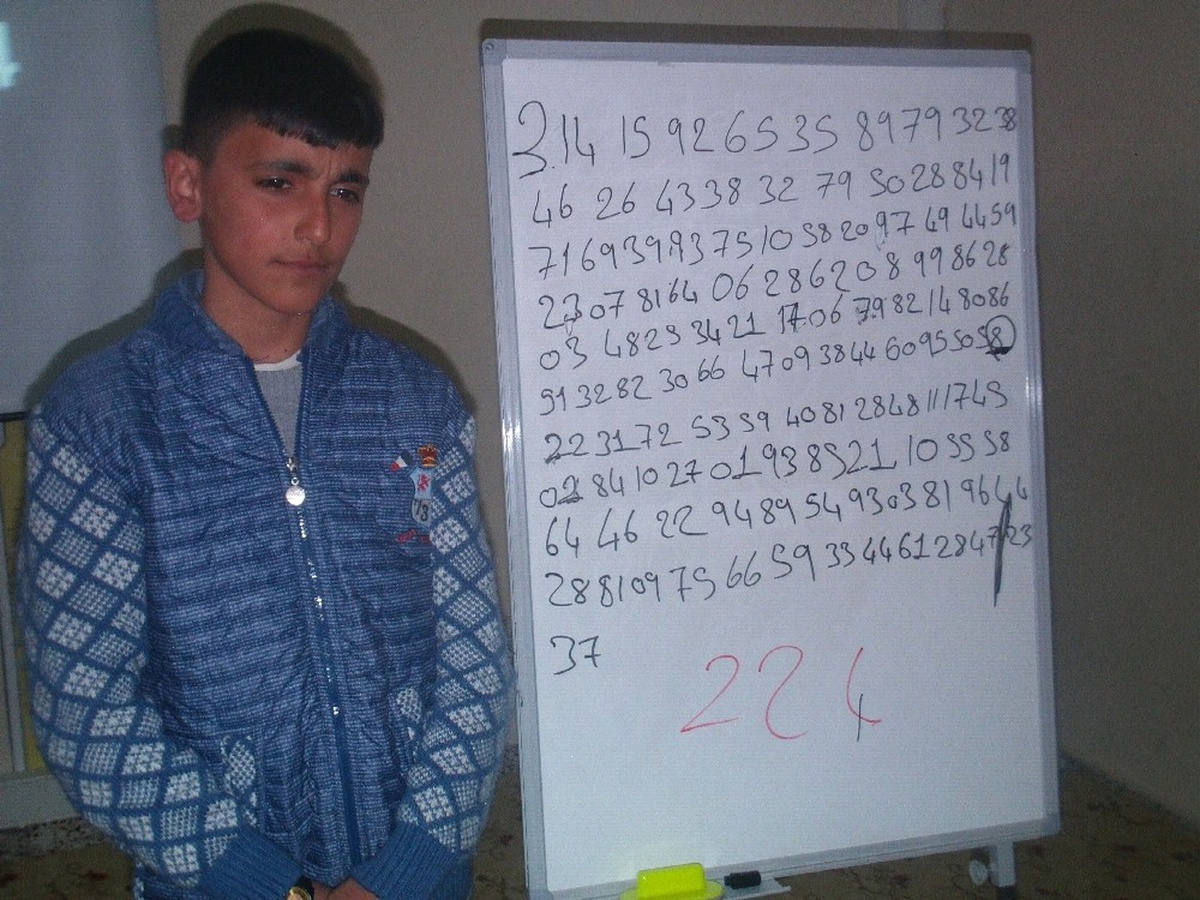 3.14 15 92 65 35 89 79 32 38
46 26 43 38 32 79 50 28 84 19
71 69 39 93 75 10 58 20 97 49 44 59
23 07 81 64 06 28 62 08 99 86 28
03 48 25 34 21 17 06 79 82 14 80 86
51 32 82 30 66 47 09 38 44 60 95 50 58
22 31 72 53 59 40 81 28 48 11 17 45
02 84 10 27 01 93 85 21 10 55 58
64 46 22 94 89 54 93 03 81 96 44
28 81 09 75 66 59 33 44 61 28 47 23
37
224
13